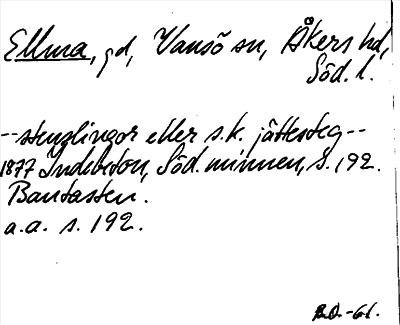 Ellma, gd, Vansö sn, Åkers hd,
Söd. l.
--stenslingor eller s.k. jättesteg--
1877 Indebetou, Söd. minnen, s. 192.
Bautasten.
a.a. s. 192.
B.O. -61.